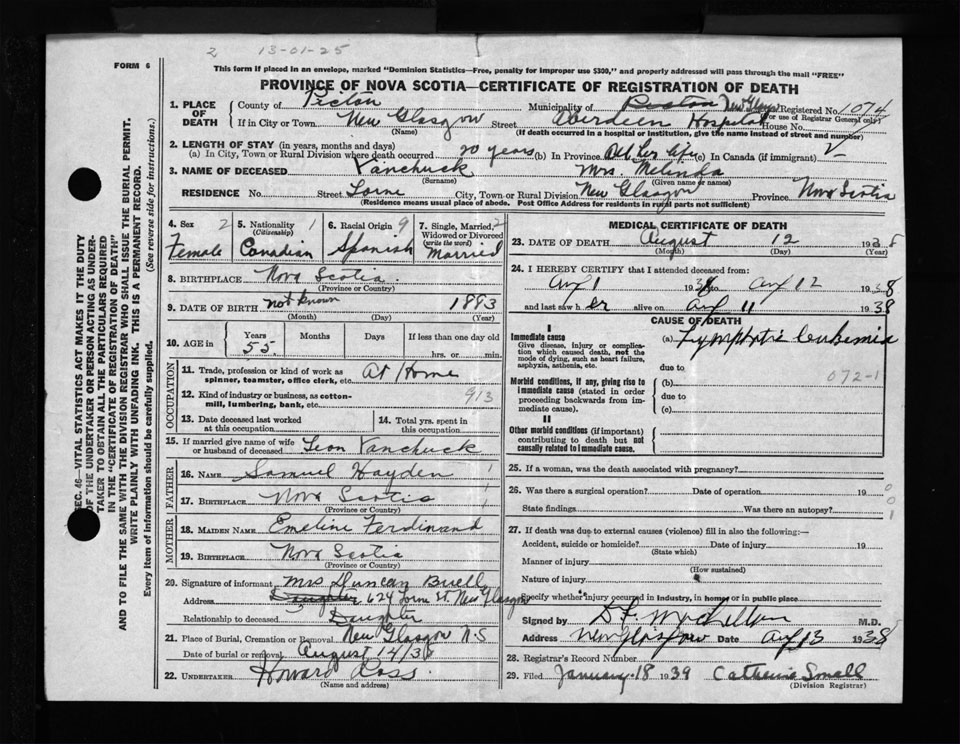 2 13-01-25
FORM 6
This form if placed in an envelope, marked "Dominion Statistics—Free, penalty for improper use $300," and properly addressed will pass through the mail "FREE"
PROVINCE OF NOVA SCOTIA—CERTIFICATE OF REGISTRATION OF DEATH
1. PLACE OF DEATH
County of Pictou Municipality of New Glasgow Registered No. 1074
(For use of Registrar General only)
If in City or Town New Glasgow Street Aberdeen Hospital House No.
(Name) (If death occurred in a hospital or institution, give the name instead of street and number)
2. LENGTH OF STAY (in years, months and days)
(a) In City, Town or Rural Division where death occurred 20 years (b) In Province All her life (c) In Canada (if immigrant)
3. NAME OF DECEASED Vanchuck Mrs. Melinda
(Surname) (Given name or names)
RESIDENCE No. Street Lorne City, Town or Rural Division New Glasgow Province Nova Scotia
(Residence means usual place of abode. Post Office Address for residents in rural parts not sufficient)
4. Sex 2
Female
5. Nationality 1
(Citizenship)
Canadian
6. Racial Origin 9
Spanish
7. Single, Married, 2
Widowed or Divorced
(write the word)
Married
8. BIRTHPLACE Nova Scotia.
(Province or Country)
9. DATE OF BIRTH not known 1883
(Month) (Day) (Year)
10. AGE in Years Months Days If less than one day old
55 hrs. or min.
OCCUPATION
11. Trade, profession or kind of work as
spinner, teamster, office clerk, etc. At Home
12. Kind of industry or business, as cotton-
mill, lumbering, bank, etc. 913
13. Date deceased last worked
at this occupation
14. Total yrs. spent in
this occupation
15. If married give name of wife
or husband of deceased Leon Vanchuck
FATHER
16. NAME Samuel Hayden 1
17. BIRTHPLACE Nova Scotia 1
(Province or Country)
MOTHER
18. MAIDEN NAME Emeline Ferdinand
19. BIRTHPLACE Nova Scotia
(Province or Country)
20. Signature of informant Mrs Duncan Buell
Address Daughter 624 Lorne St. New Glasgow
Relationship to deceased Daughter
21. Place of Burial, Cremation or Removal New Glasgow N.S
Date of burial or removal August 14/38
22. UNDERTAKER Howard Ross.
(Name and address)
MEDICAL CERTIFICATE OF DEATH
23. DATE OF DEATH August 12 1938
(Month) (Day) (Year)
24. I HEREBY CERTIFY that I attended deceased from:
Aug 1 1938 to Aug 12 1938
and last saw her alive on Aug 11 1938
CAUSE OF DEATH
I
Immediate cause
Give disease, injury or complica-
tion which caused death, not the
mode of dying, such as heart failure,
asphyxia, asthenia, etc.
(a) Lymphatic leukemia
072-1
due to
Morbid conditions, if any, giving rise to
immediate cause (stated in order
proceeding backwards from im-
mediate cause).
(b)
due to
(c)
II
Other morbid conditions (if important)
contributing to death but not
causally related to immediate cause.
25. If a woman, was the death associated with pregnancy?
26. Was there a surgical operation? Date of operation 19 0
State findings Was there an autopsy? 0 1
27. If death was due to external causes (violence) fill in also the following:—
Accident, suicide or homicide? Date of injury 19
(State which)
Manner of injury
(How sustained)
Nature of injury
Specify whether injury occurred in industry, in home, or in public place
Signed by M.D.
Address New Glasgow Date Aug 13 1938
28. Registrar's Record Number
29. Filed January 18 1939 Catherine Small
(Division Registrar)
SEC. 46—VITAL STATISTICS ACT MAKES IT THE DUTY
OF THE UNDERTAKER OR PERSON ACTING AS UNDER-
TAKER TO OBTAIN ALL THE PARTICULARS REQUIRED
IN THE "CERTIFICATE OF REGISTRATION OF DEATH"
AND TO FILE THE SAME WITH THE DIVISION REGISTRAR WHO SHALL ISSUE THE BURIAL PERMIT.
WRITE PLAINLY WITH UNFADING INK. THIS IS A PERMANENT RECORD.
Every item of information should be carefully supplied. (See reverse side for instructions.)